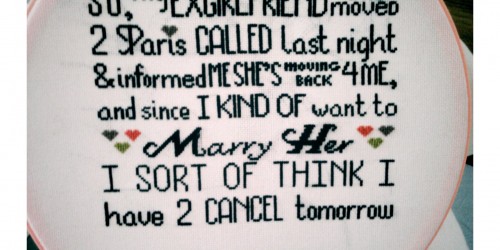 So, my EXGIRLFRIEND moved
2 Paris CALLED last night
& informed ME SHE'S MOVING BACK 4 ME,
and since I KIND OF want to
Marry Her
I SORT OF THINK I
have 2 CANCEL tomorrow